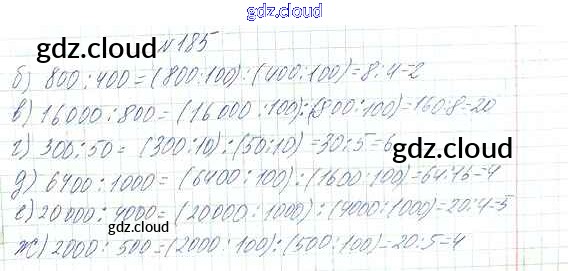 gdz.cloud
gdz.cloud
№185
б) 800:400=(800:100):(400:100)=8:4=2
в) 16000:800=(16000:100):(800:100)=160:8=20
г) 300:50=(300:10):(50:10)=30:5=6
gdz.cloud
д) 6400:1000=(6400:100):(1600:100)=64:16=4
е) 20000:4000=(20000:1000):(4000:1000)=20:4=5
ж) 2000:500=(2000:100):(500:100)=20:5=4
gdz.cloud